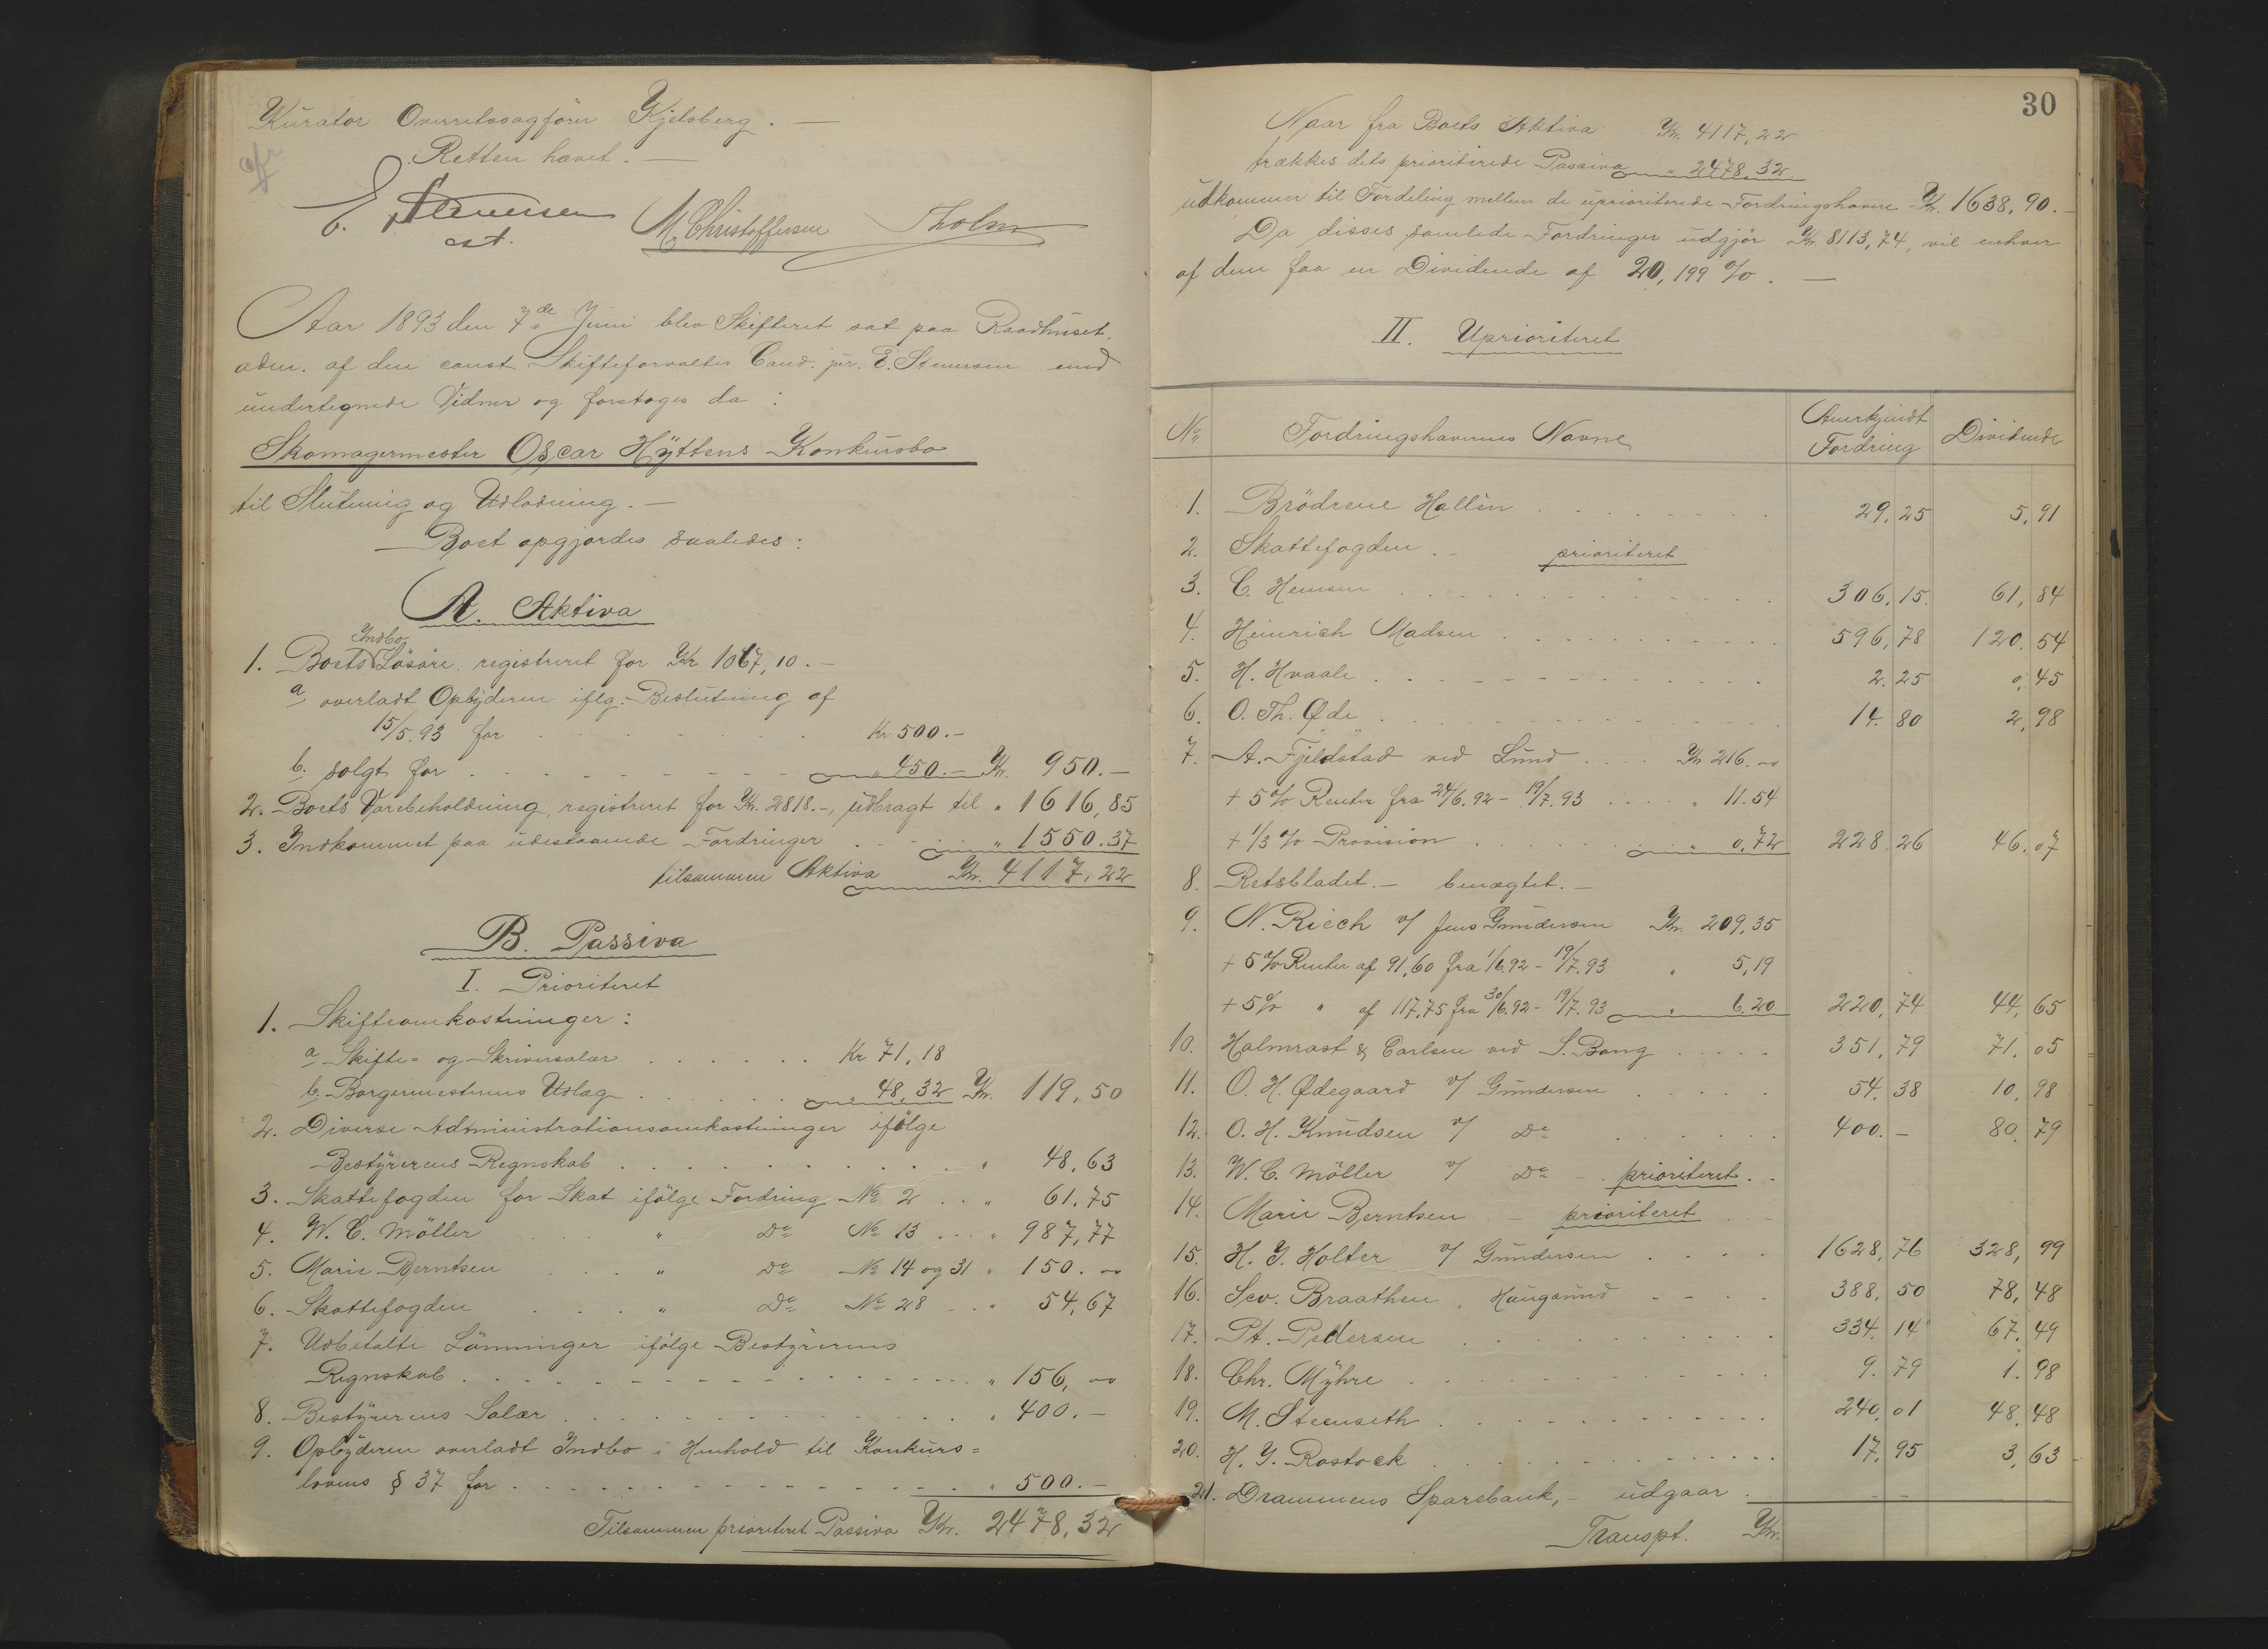 Kurator Overretssagfører Kjelsberg. —
Retten hævet. —
E. Stenersen M. Christoffersen Tholm
cst.
Aar 1893 den 7de Juni blev Skifteret sat paa Raadhuset,
adm. af den const. Skifteforvalter Cand. jur. E. Stenersen med
undertegnede Vidner og foretoges da :
Skomagermester Oscar Hyttens Konkursbo
til Slutning og Udlodning. —
Boet opgjordes saaledes :
A. Aktiva
Indbo
1. Boets Løsøre, registreret for Kr 1067,10. —
a overladt Opbyderen iflg. Beslutning af
15/5.93 for . . . . . . Kr 500.—
b. solgt for . . . . . . „ 450.— Kr. 950.—
2. Boets Varebeholdning, registreret for Kr. 2818.—, udbragt til „ 1616,85
3. Indkommet paa udestaaende Fordringer . . . „ 1550.37
tilsammen Aktiva Kr. 4117,22
B. Passiva
I. Prioriteret
1. Skifteomkostninger :
a Skifte= og Skriversalær . . . . . . Kr 71,18
b. Borgermesterens Udlæg . . . . . . „ 48,32 Kr. 119,50
2. Diverse Administrationsomkostninger ifølge
Bestyrerens Regnskab . . . . . . . . „ 48,63
3. Skattefogden for Skat ifølge Fordring No 2 . . „ 61.75
4. W. C. Møller „ Do No 13 . . . „ 987,77
5. Marie Berntsen . . . „ Do No 14 og 31 „ 150. 00
6. Skattefogden . . . „ Do No 28 . . „ 54,67
7. Udbetalte Lønninger ifølge Bestyrerens
Regnskab . . . . . . . . „ 156, 00
8. Bestyrerens Salær . . . . . . . . „ 400.—
9. Opbyderen overladt Indbo i Henhold til Konkurs=
lovens § 37 for . . . . . . . . „ 500.—
Tilsammen prioriteret Passiva Kr. 2478,32
30
Naar fra Boets Aktiva Kr. 4117,22
trækkes dets prioriterede Passiva „ 2478,32
udkommer til Fordeling mellem de uprioriterede Fordringshavere Kr. 1638,90.—
Da disses samlede Fordringer udgjør Kr. 8113,74, vil enhver
af dem faa en Dividende af 20,199 %. —
II. Uprioriteret
No Fordringshavernes Navne Anerkjendt Fordring Dividende
1. Brødrene Hallèn . . . . . . 29,25 5,91
2. Skattefogden. — prioriteret
3. C. Hemsen . . . . . . 306,15. 61,84
4. Heinrich Madsen . . . . . . 596,78 120.54
5. H. Hvaale . . . . . . 2.25 0,45
6. O. Th. Øde . . . . . . 14.80 2,98
7. A. Fjeldstad ved Lund . . . . Kr 216.00
+ 5% Renter fra 24/6.92 – 19/7.93 . . . . „ 11.54
+ 1/3 % Provision . . . . . . „ 0.72 228.26 46.07
8. Retsbladet. — benægtet. —
9. N. Riech v/ Jens Gundersen Kr. 209,35
+ 5% Renter af 91,60 fra 1/6.92 – 19/7.93 „ 5,19
+ 5% „ af 117,75 fra 30/6.92 – 19/7.93 „ 6.20 220,74 44,65
10. Holmrast & Carlsen ved S. Bang . . . . . 351,79 71,05
11. O. H. Ødegaard v/ Gundersen . . . . . 54.38 10,98
12. O. H. Knudsen v/ Do . . . . . . 400.— 80.79
13. W. C. Møller v/ Do — . prioriteret . .
14. Marie Berntsen — prioriteret . —
15. H. J. Holter v/ Gundersen . . . . 1628,76 328,99
16. Sev. Braathen, Haugsund — . — . 388,50 78,48
17. Pt. Pedersen . . . . . . 334.14 67.49
18. Chr. Myhre . . . . . . 9.79 1.98
19. M. Steenseth . . . . . . 240,01 48.48
20. H. J. Rostock . . . . . . 17,95 3,63
21. Drammens Sparebank, — udgaar .
Transpt. Kr.